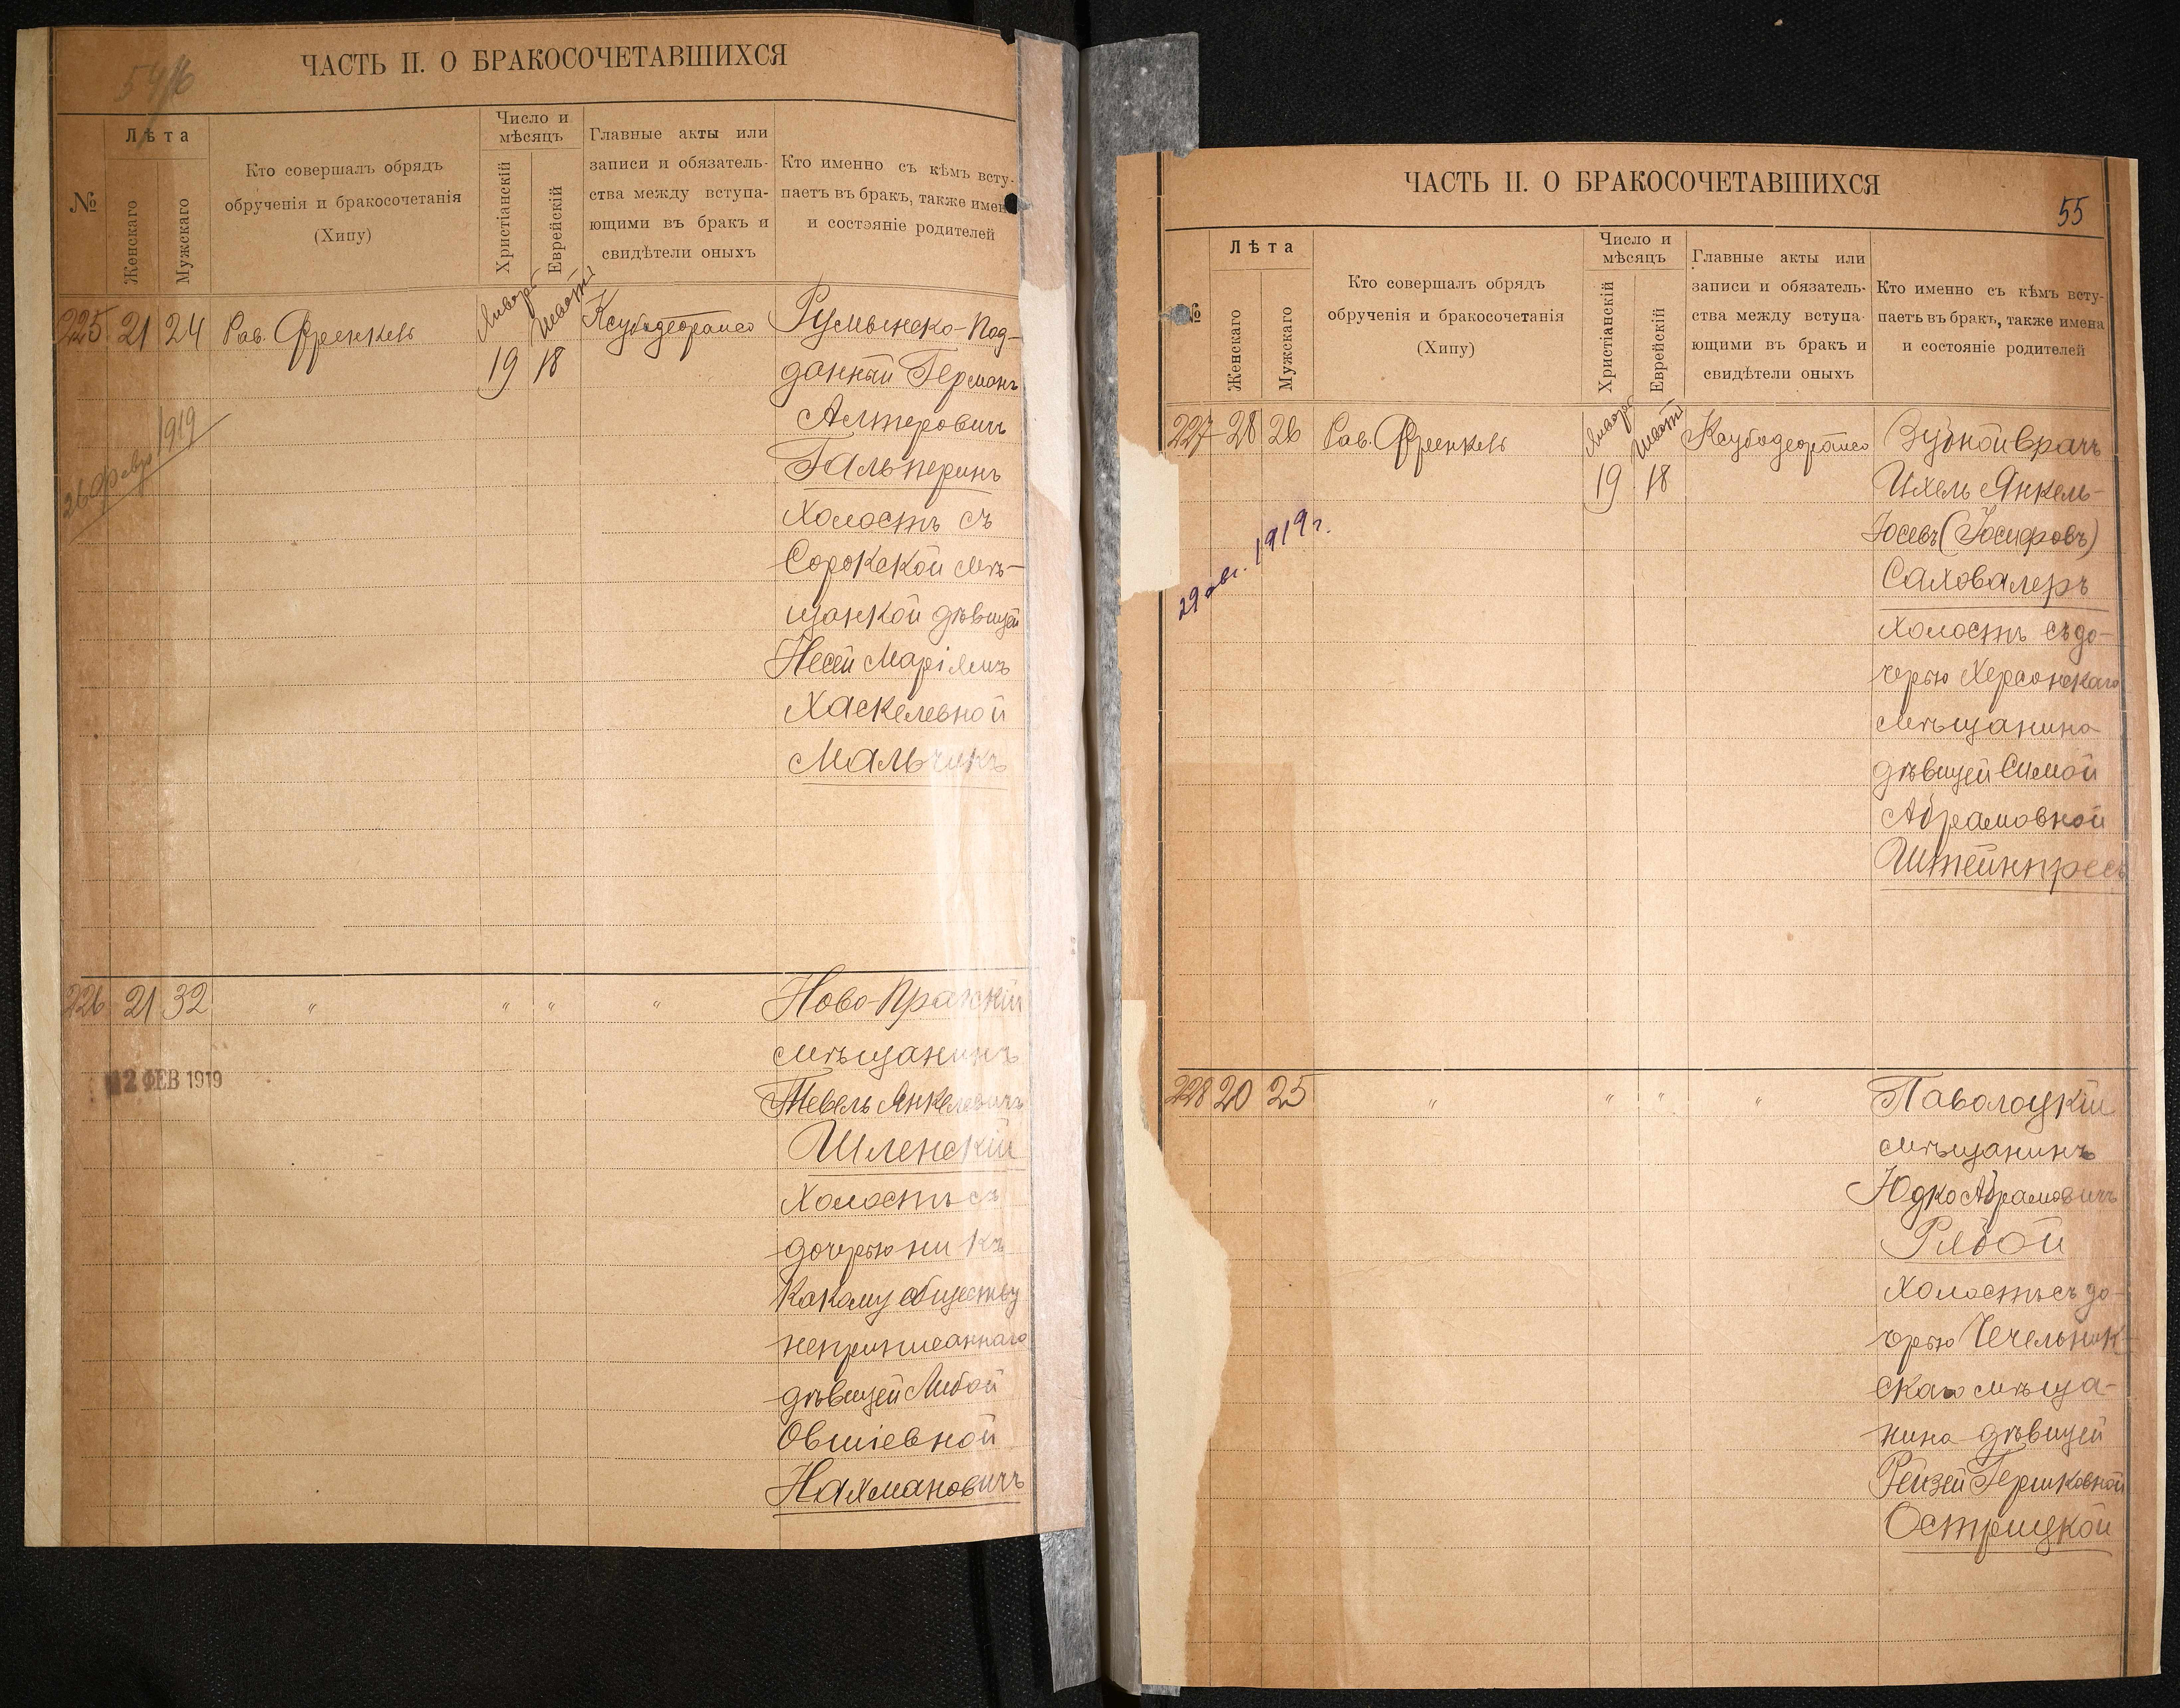 ЧАСТЬ II. О БРАКОСОЧЕТАВШИХСЯ
№
Лѣта
Женскаго
Мужскаго
Кто совершалъ обрядъ
обрученія и бракосочетанія
(Хипу)
Число и
мѣсяцъ
Христіанскій
Еврейскій
Главные акты или
записи и обязатель-
ства между вступа-
ющими въ бракъ и
свидѣтели оныхъ
Кто именно съ кѣмъ всту-
паетъ въ бракъ, также имен
и состояніе родителей
225 21 24 Рав. Френкель
Январь
19
Шватъ
18
Румынско-Под-
данный Германъ
Алтеровичъ
Гальперинъ
холостъ съ
Сорокской мѣ-
щанкой дѣвицей
Несей Маріямъ
Хаскелевной
Мальчикъ
26 февр 1919
226 21 32 " " " "
Ново-Пражскій
мѣщанинъ
Тевель Янкелевичъ
Шленскій
холостъ съ
дочерью ни къ
какому обществу
неприписаннаго
дѣвицей Либой
Овшіевной
Нахмановичъ
12 ФЕВ 1919
ЧАСТЬ II. О БРАКОСОЧЕТАВШИХСЯ
55
№
Лѣта
Женскаго
Мужскаго
Кто совершалъ обрядъ
обрученія и бракосочетанія
(Хипу)
Число и
мѣсяцъ
Христіанскій
Еврейскій
Главные акты или
записи и обязатель-
ства между вступа-
ющими въ бракъ и
свидѣтели оныхъ
Кто именно съ кѣмъ всту-
паетъ въ бракъ, также имена
и состояніе родителей
227 28 26 Рав. Френкель
Январь
19
Шватъ
18
Зубной врачъ
Ихель Янкель-
Юсевъ (Іосифовъ)
Саховалеръ
холостъ съ до-
черью Херсонскаго
мѣщанина
дѣвицей Симой
Абрамовной
Штейнпресъ
1919 г.
228 20 25 " " " "
Паволоцкій
мѣщанинъ
Юдко Абрамовичъ
Рябой
холостъ съ до-
черью Чечельник-
скаго мѣща-
нина дѣвицей
Рейзей Гершковной
Острицкой